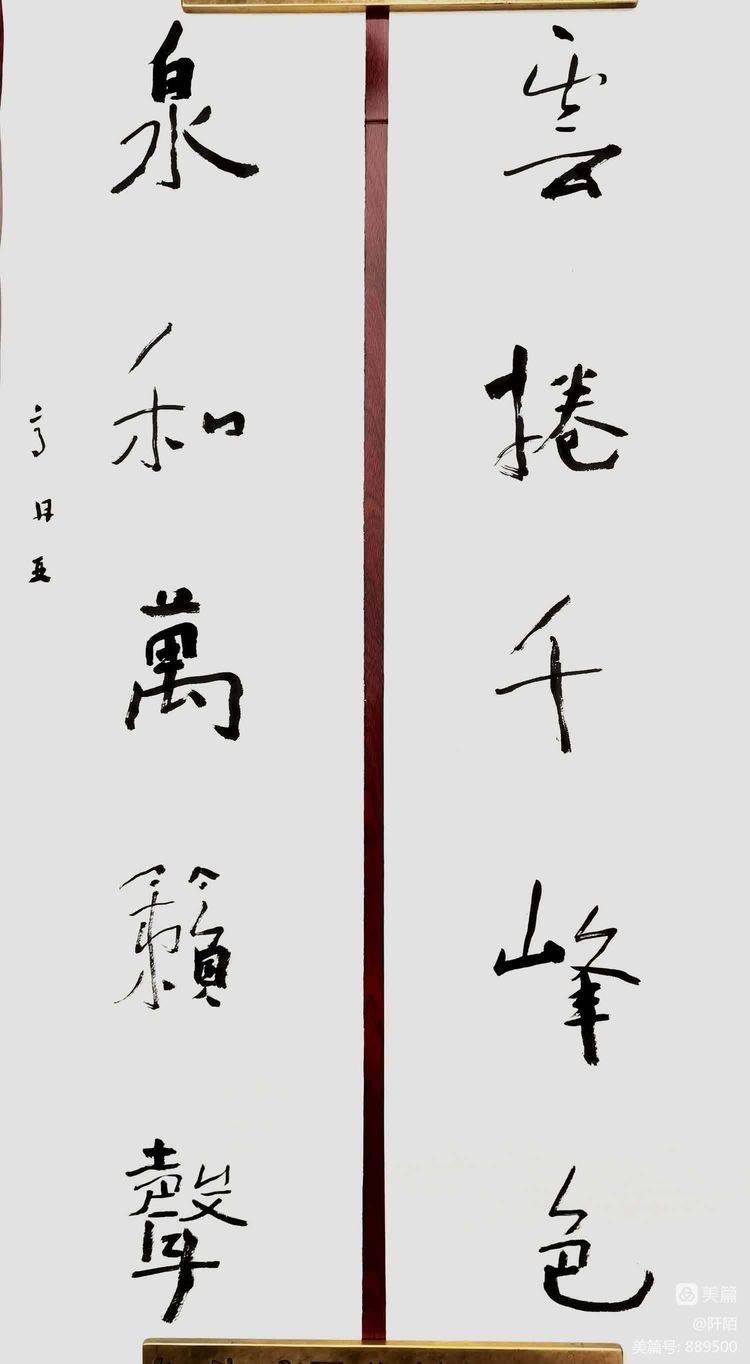 雲捲千峰色
泉和萬籟聲
美篇
@阡陌
美篇号: 889500